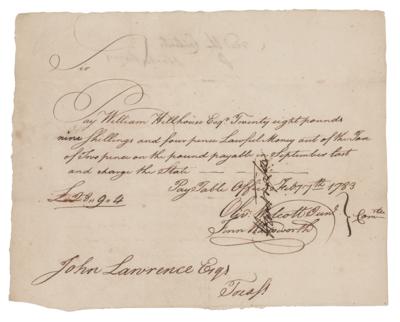 Sir
Pay William Hillhouse Esqr. Twenty eight pounds
nine Shillings and four pence Lawful Money out of the Tax
of Two pence on the pound payable in September last
and charge the State
Pay Table Office Feby 7th 1783
£28..9..4
Olivr. Wolcott Junr.
Comtee
Fenn Wadsworth
John Lawrence Esqr
Treasr